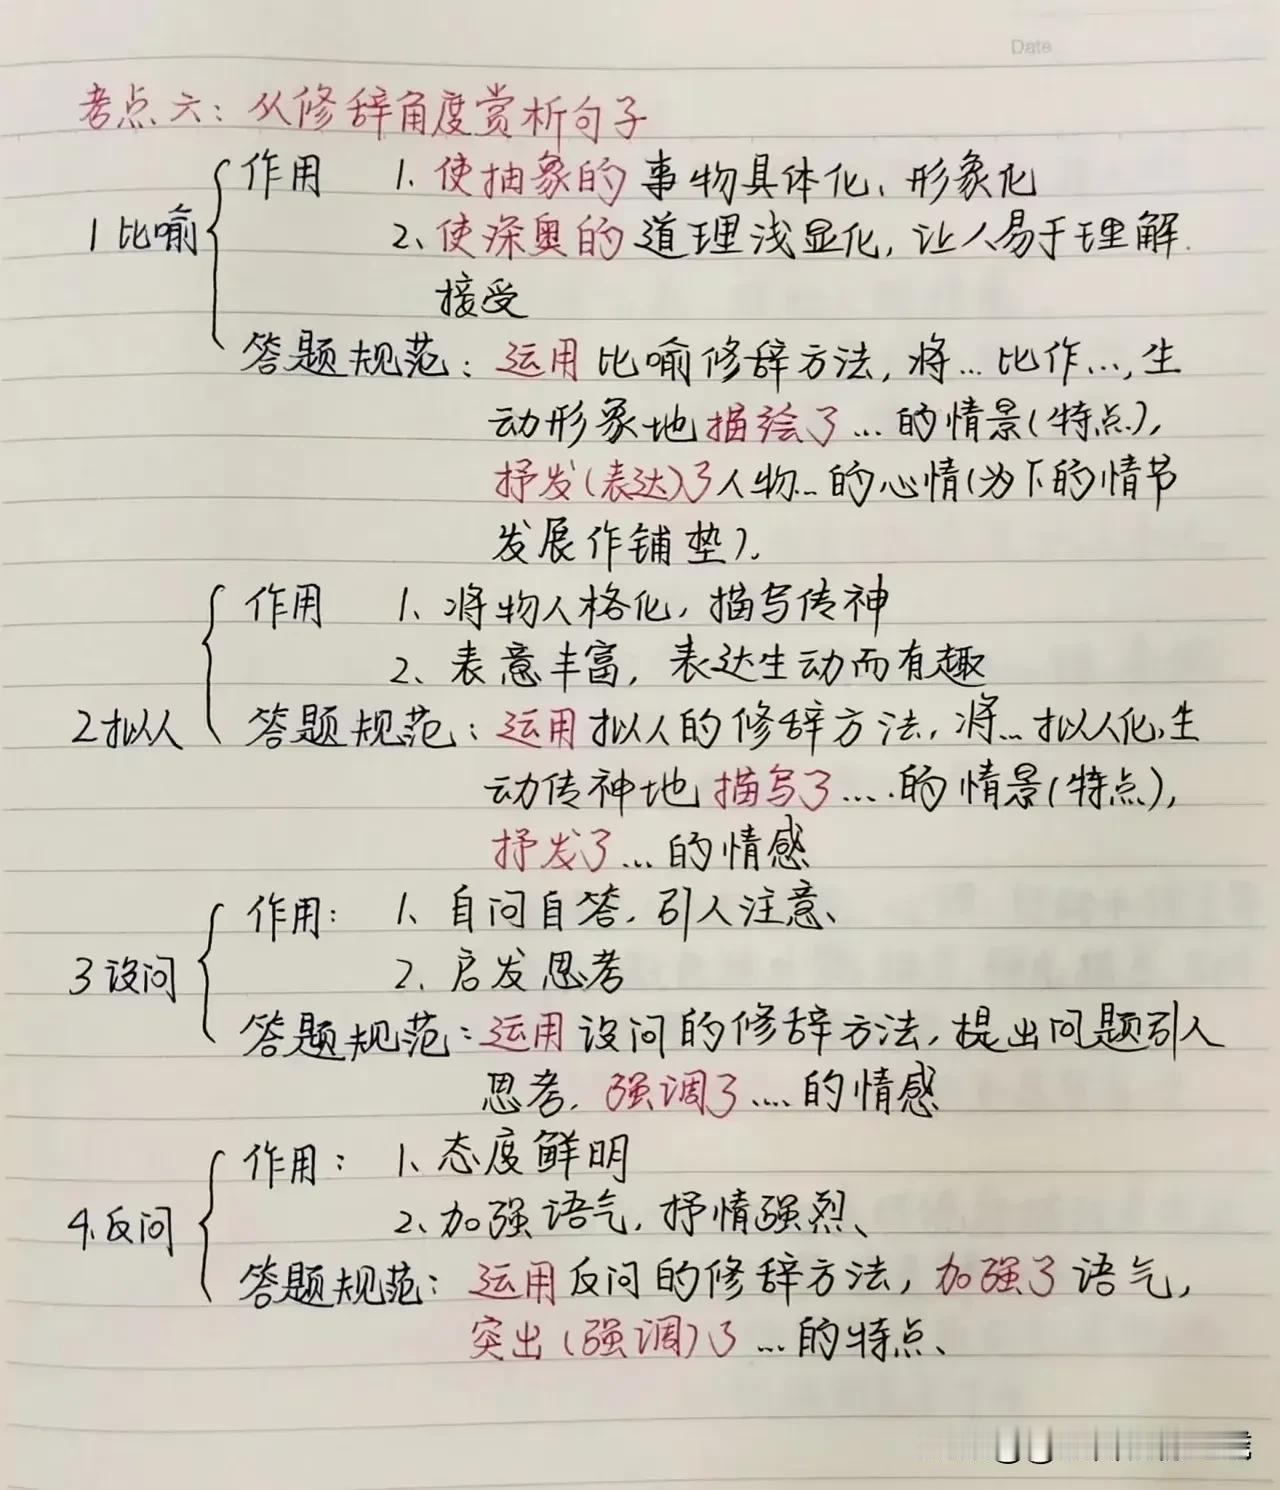 Date
考点六：从修辞角度赏析句子
作用 1.使抽象的事物具体化、形象化
1比喻 2、使深奥的道理浅显化,让人易于理解.
接受
答题规范：运用比喻修辞方法,将…比作…,生
动形象地描绘了…的情景(特点),
抒发(表达)了人物…的心情(为下的情节
发展作铺垫)。
作用 1、将物人格化,描写传神
2、表意丰富,表达生动而有趣
2拟人 答题规范：运用拟人的修辞方法,将…拟人化,生
动传神地描写了….的情景(特点),
抒发了…的情感
作用： 1、自问自答.引人注意、
3设问 2、启发思考
答题规范：运用设问的修辞方法,提出问题引人
思考.强调了….的情感
作用： 1、态度鲜明
4.反问 2、加强语气,抒情强烈、
答题规范：运用反问的修辞方法,加强了语气,
突出(强调)了…的特点、